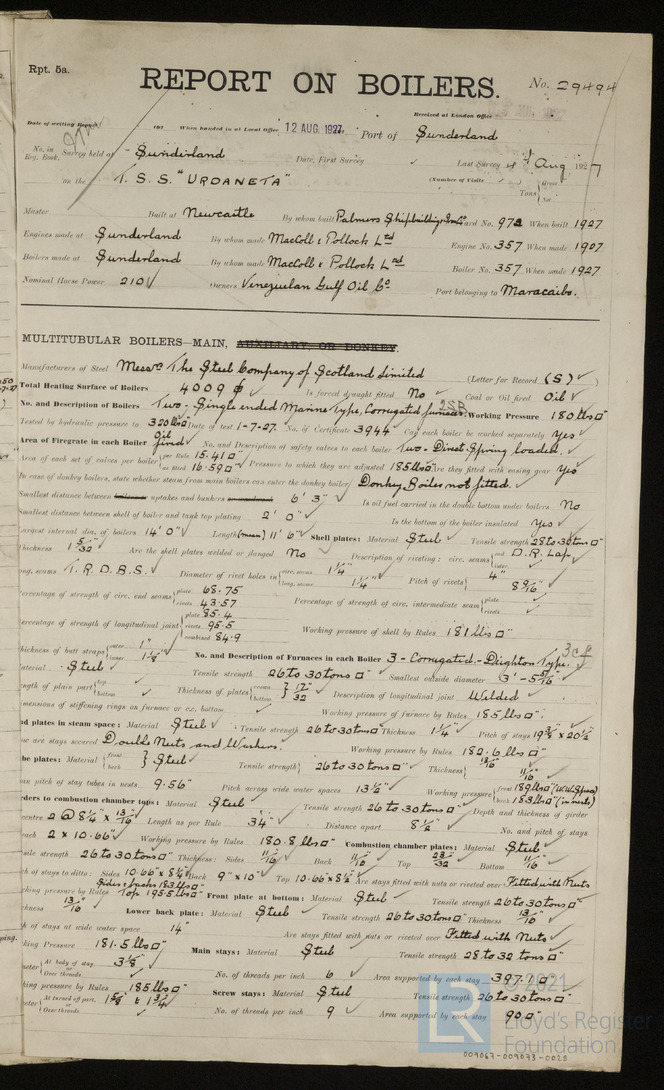 Rpt. 5a.
REPORT ON BOILERS.
No. 29494
Received at London Office
Date of writing Report 192 When handed in at Local Office 12 AUG. 1927. Port of Sunderland
No. in Reg. Book. Survey held at Sunderland Date, First Survey Last Survey 4th Aug 1927
on the T.S.S. "URDANETA" (Number of Visits Tons Gross Net
Master Built at Newcastle By whom built Palmers Shipbuilding Yard No. 972 When built 1927
Engines made at Sunderland By whom made MacColl & Pollock Ltd Engine No. 357 When made 1907
Boilers made at Sunderland By whom made MacColl & Pollock Ltd Boiler No. 357 When made 1927
Nominal Horse Power 210 Owners Venezuelan Gulf Oil Co Port belonging to Maracaibo.
MULTITUBULAR BOILERS MAIN, AUXILIARY, OR DONKEY.
Manufacturers of Steel Messrs The Steel Company of Scotland Limited (Letter for Record (S))
Total Heating Surface of Boilers 4009 Is forced draught fitted No Coal or Oil fired Oil
No. and Description of Boilers Two - Single ended Marine Type, Corrugated furnaces 2SB Working Pressure 180 lbs □"
Tested by hydraulic pressure to 320 lbs □" Date of test 1-7-27. No. of Certificate 3944 Can each boiler be worked separately Yes
Area of Firegrate in each Boiler Oil fired No. and Description of safety valves to each boiler Two - Direct Spring loaded.
Area of each set of valves per boiler per Rule 15.41 □" as fitted 16.59 □" Pressure to which they are adjusted 185 lbs □" Are they fitted with easing gear Yes
In case of donkey boilers, state whether steam from main boilers can enter the donkey boiler Donkey Boiler not fitted.
Smallest distance between boilers or uptakes and bunkers or woodwork 6' 3" Is oil fuel carried in the double bottom under boilers No
Smallest distance between shell of boiler and tank top plating 2' 0" Is the bottom of the boiler insulated Yes
Largest internal dia. of boilers 14' 0" Length (mean) 11' 6" Shell plates: Material Steel Tensile strength 28 to 32 tons □"
Thickness 1 5/32" Are the shell plates welded or flanged No Description of riveting: circ. seams end D.R. Lap inter.
long. seams T.R.D.B.S. Diameter of rivet holes in circ. seams 1 1/4" long. seams 1 1/4" Pitch of rivets 4" 8 9/16"
Percentage of strength of circ. end seams plate 68.75 rivets 43.57 Percentage of strength of circ. intermediate seam plate rivets
Percentage of strength of longitudinal joint plate 85.4 rivets 95.5 combined 84.9 Working pressure of shell by Rules 181 lbs □"
Thickness of butt straps outer 1" inner 1 1/8" No. and Description of Furnaces in each Boiler 3 - Corrugated - Deighton Type. 3cf
Material Steel Tensile strength 26 to 30 tons □" Smallest outside diameter 3' - 5 5/16"
Length of plain part top bottom Thickness of plates crown bottom 17/32" Description of longitudinal joint Welded
Dimensions of stiffening rings on furnace or c.c. bottom Working pressure of furnace by Rules 185 lbs □".
End plates in steam space: Material Steel Tensile strength 26 to 30 tons □" Thickness 1 1/4" Pitch of stays 19 3/4" x 20 1/2"
How are stays secured Double Nuts and Washers. Working pressure by Rules 182.6 lbs □"
Tube plates: Material front back Steel Tensile strength 26 to 30 tons □" Thickness 13/16" 11/16"
Mean pitch of stay tubes in nests 9.56" Pitch across wide water spaces 13 1/2" Working pressure front 189 lbs □" (W.W. Space) back 183 lbs □" (in nests)
Girders to combustion chamber tops: Material Steel Tensile strength 26 to 30 tons □" Depth and thickness of girder
centre 2 @ 8 1/4" x 13/16" Length as per Rule 34" Distance apart 8 1/2" No. and pitch of stays
each 2 x 10.66" Working pressure by Rules 180.8 lbs □" Combustion chamber plates: Material Steel
Tensile strength 26 to 30 tons □" Thickness: Sides 11/16" Back 11/16" Top 23/32" Bottom 11/16"
Pitch of stays to ditto: Sides 10.66" x 8 1/4" Back 9" x 10" Top 10.66 x 8 1/2" Are stays fitted with nuts or riveted over Fitted with Nuts
Working pressure by Rules Sides & backs 183 lbs □" Top 195.5 lbs □" Front plate at bottom: Material Steel Tensile strength 26 to 30 tons □"
Thickness 13/16" Lower back plate: Material Steel Tensile strength 26 to 30 tons □" Thickness 13/16"
Pitch of stays at wide water space 14" Are stays fitted with nuts or riveted over Fitted with Nuts
Working Pressure 181.5 lbs □" Main stays: Material Steel Tensile strength 28 to 32 tons □"
Diameter At body of stay, Over threads 3 3/8" No. of threads per inch 6 Area supported by each stay 397.7 □"
Working pressure by Rules 185 lbs □" Screw stays: Material Steel Tensile strength 26 to 30 tons □"
Diameter At turned off part, Over threads 1 5/8" & 1 3/4" No. of threads per inch 9 Area supported by each stay 90 □"
© 2021
LR
Lloyd's Register
Foundation
009067-009073-0028